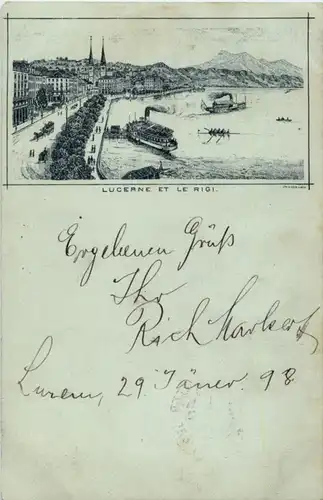 LUCERNE ET LE RIGI.
Ergebenen Gruß
Ihr
Rich
Luzern, 29. Jäner. 98